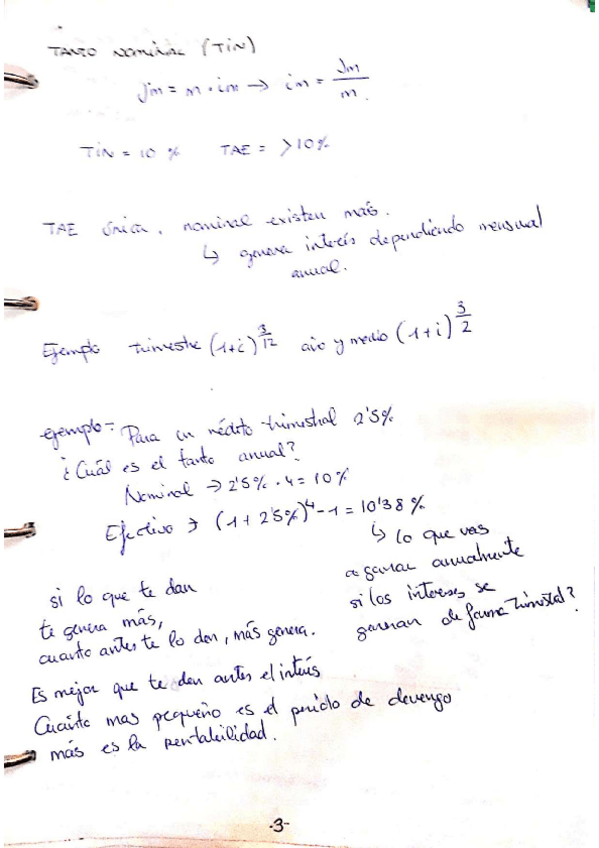 TANTO NOMINAL (TiN)
Jm = m · im → im = Jm/m
TiN = 10 % TAE = >10%
TAE única, nominal existen más.
↳ genera interés dependiendo mensual
anual.
Ejemplo trimestre (1+i)^3/12 año y medio (1+i)^3/2
ejemplo = Para un rédito trimestral 2'5%
¿Cuál es el tanto anual?
Nominal → 2'5% · 4 = 10%
Efectivo → (1 + 2'5%)^4 - 1 = 10'38 %
↳ lo que vas
a ganar anualmente
si los intereses se
ganan de forma trimestral?
si lo que te dan
te genera más,
cuanto antes te lo dan, más genera.
Es mejor que te den antes el interés
Cuánto mas pequeño es el periodo de devengo
más es la rentabilidad.
-3-